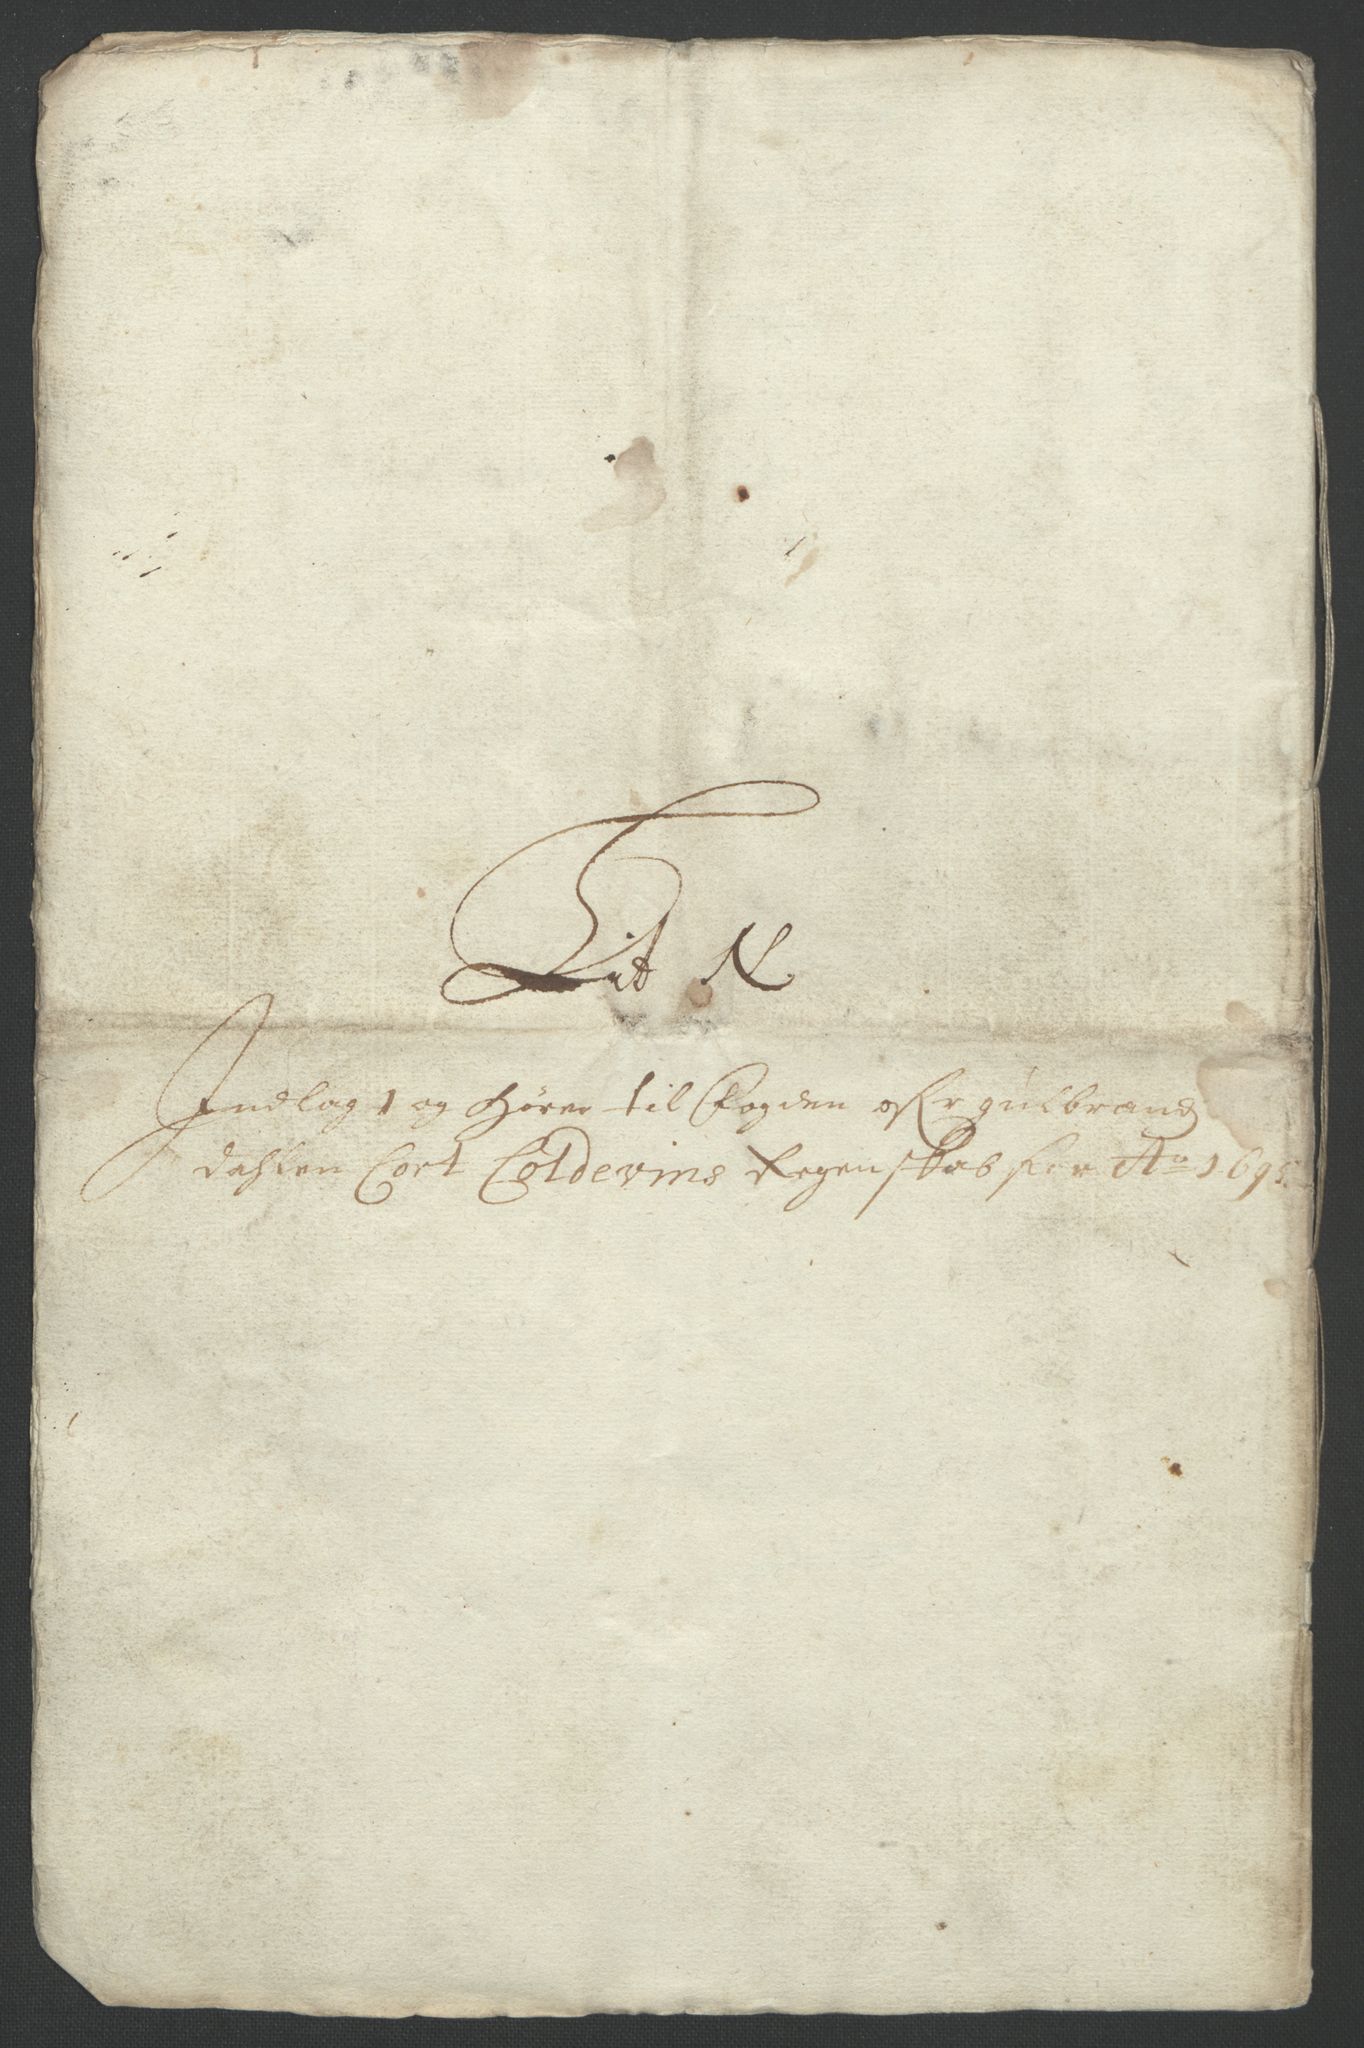 Lit N.
Indlagt og hører til Fogden ofr gülbrands
dahlen Cort Coldevins Regenskab for Ao 1695.